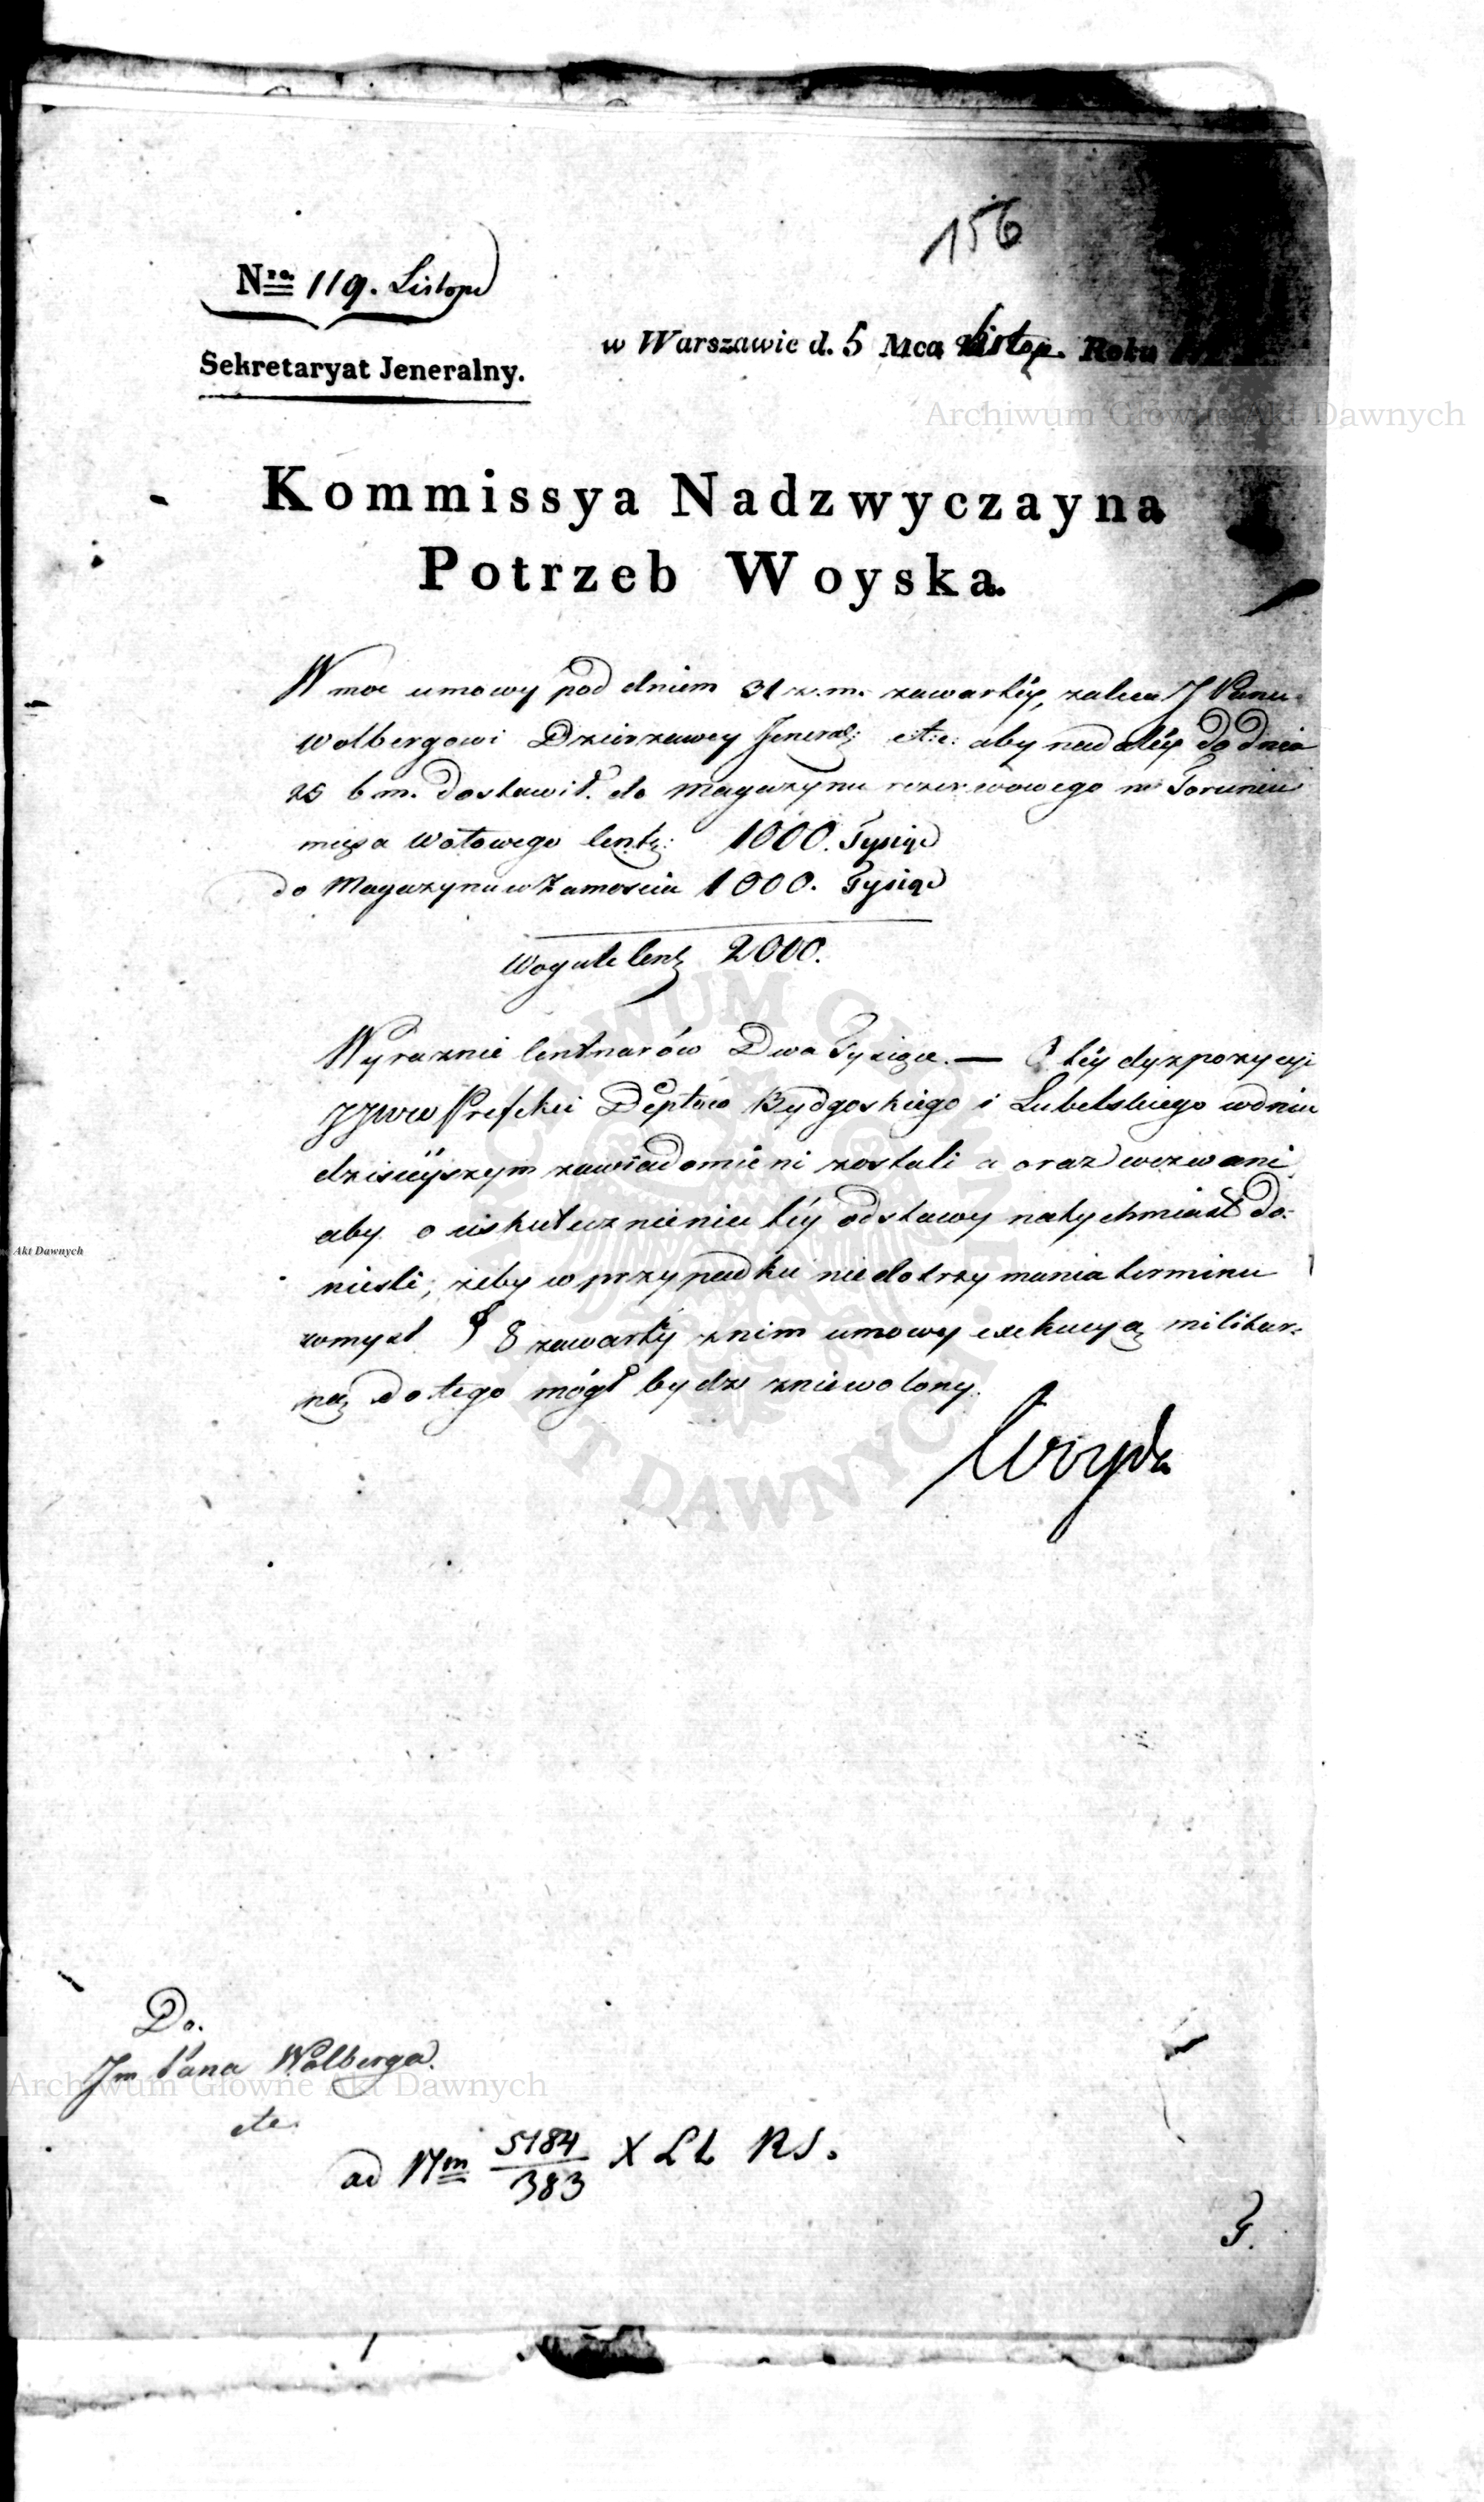 156
Nro. 119. Listopd
Sekretaryat Jeneralny.
w Warszawie d. 5 Mca Listop. Roku
Kommissya Nadzwyczayna
Potrzeb Woyska.
W moc umowy pod dniem 31 z.m. zawartéy, zaleca J Panu
Wolbergowi Dzierzawcy Jeneral: etc: aby nadaléy do dnia
25 b m. dostawił do Magazynu rezerwowego w Toruniu
mięsa Wołowego Centn: 1000. Tysiąc
do Magazynu w Zamosciu 1000. Tysiąc
Wogule Centn 2000.
Wyraznie Centnarów Dwa Tysiące. — O téy dyspozycyi
JJWW Prefekci Deptów Bydgoskiego i Lubelskiego w dniu
dzisieyszym zawiadomieni zostali a oraz wezwani
aby o uskutecznieniu téy odstawy natychmiast do-
niesli, żeby w przypadku niedotrzymania terminu
w myśl § 8 zawartéy z nim umowy exekucyą militar-
ną do tego mógł bydz zniewolony.
Do.
Jm Pana Wolberga.
etc.
ad Nm 5184/383 X Lt RS.
Archiwum Główne Akt Dawnych
Akt Dawnych
ARCHIWUM GŁÓWNE AKT DAWNYCH
Archiwum Główne Akt Dawnych